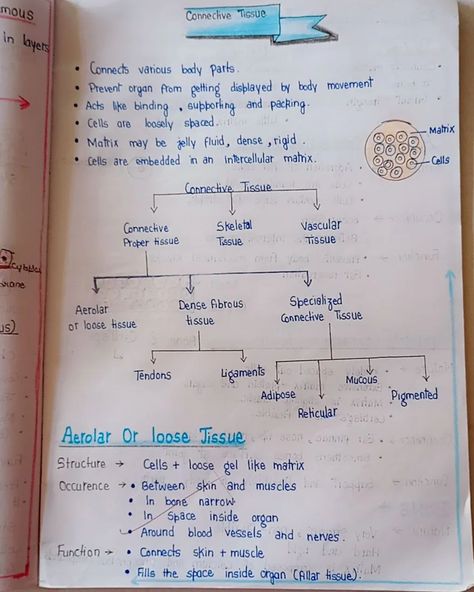 mous
in layers
Connective Tissue
• Connects various body parts.
• Prevent organ from getting displayed by body movement
• Acts like binding, supporting and packing.
• Cells are loosely spaced.
• Matrix may be jelly fluid, dense, rigid.
• Cells are embedded in an intercellular matrix.
Matrix
Cells
Connective Tissue
Connective Proper tissue
Skeletal Tissue
Vascular Tissue
Aerolar or loose tissue
Dense fibrous tissue
Specialized Connective Tissue
Tendons
Ligaments
Adipose
Reticular
Mucous
Pigmented
Aerolar Or loose Tissue
Structure → Cells + loose gel like matrix
Occurence → • Between skin and muscles
• In bone narrow
• In Space inside organ
• Around blood vessels and nerves.
Function → • Connects skin + muscle
• Fills the space inside organ (Allar tissue).